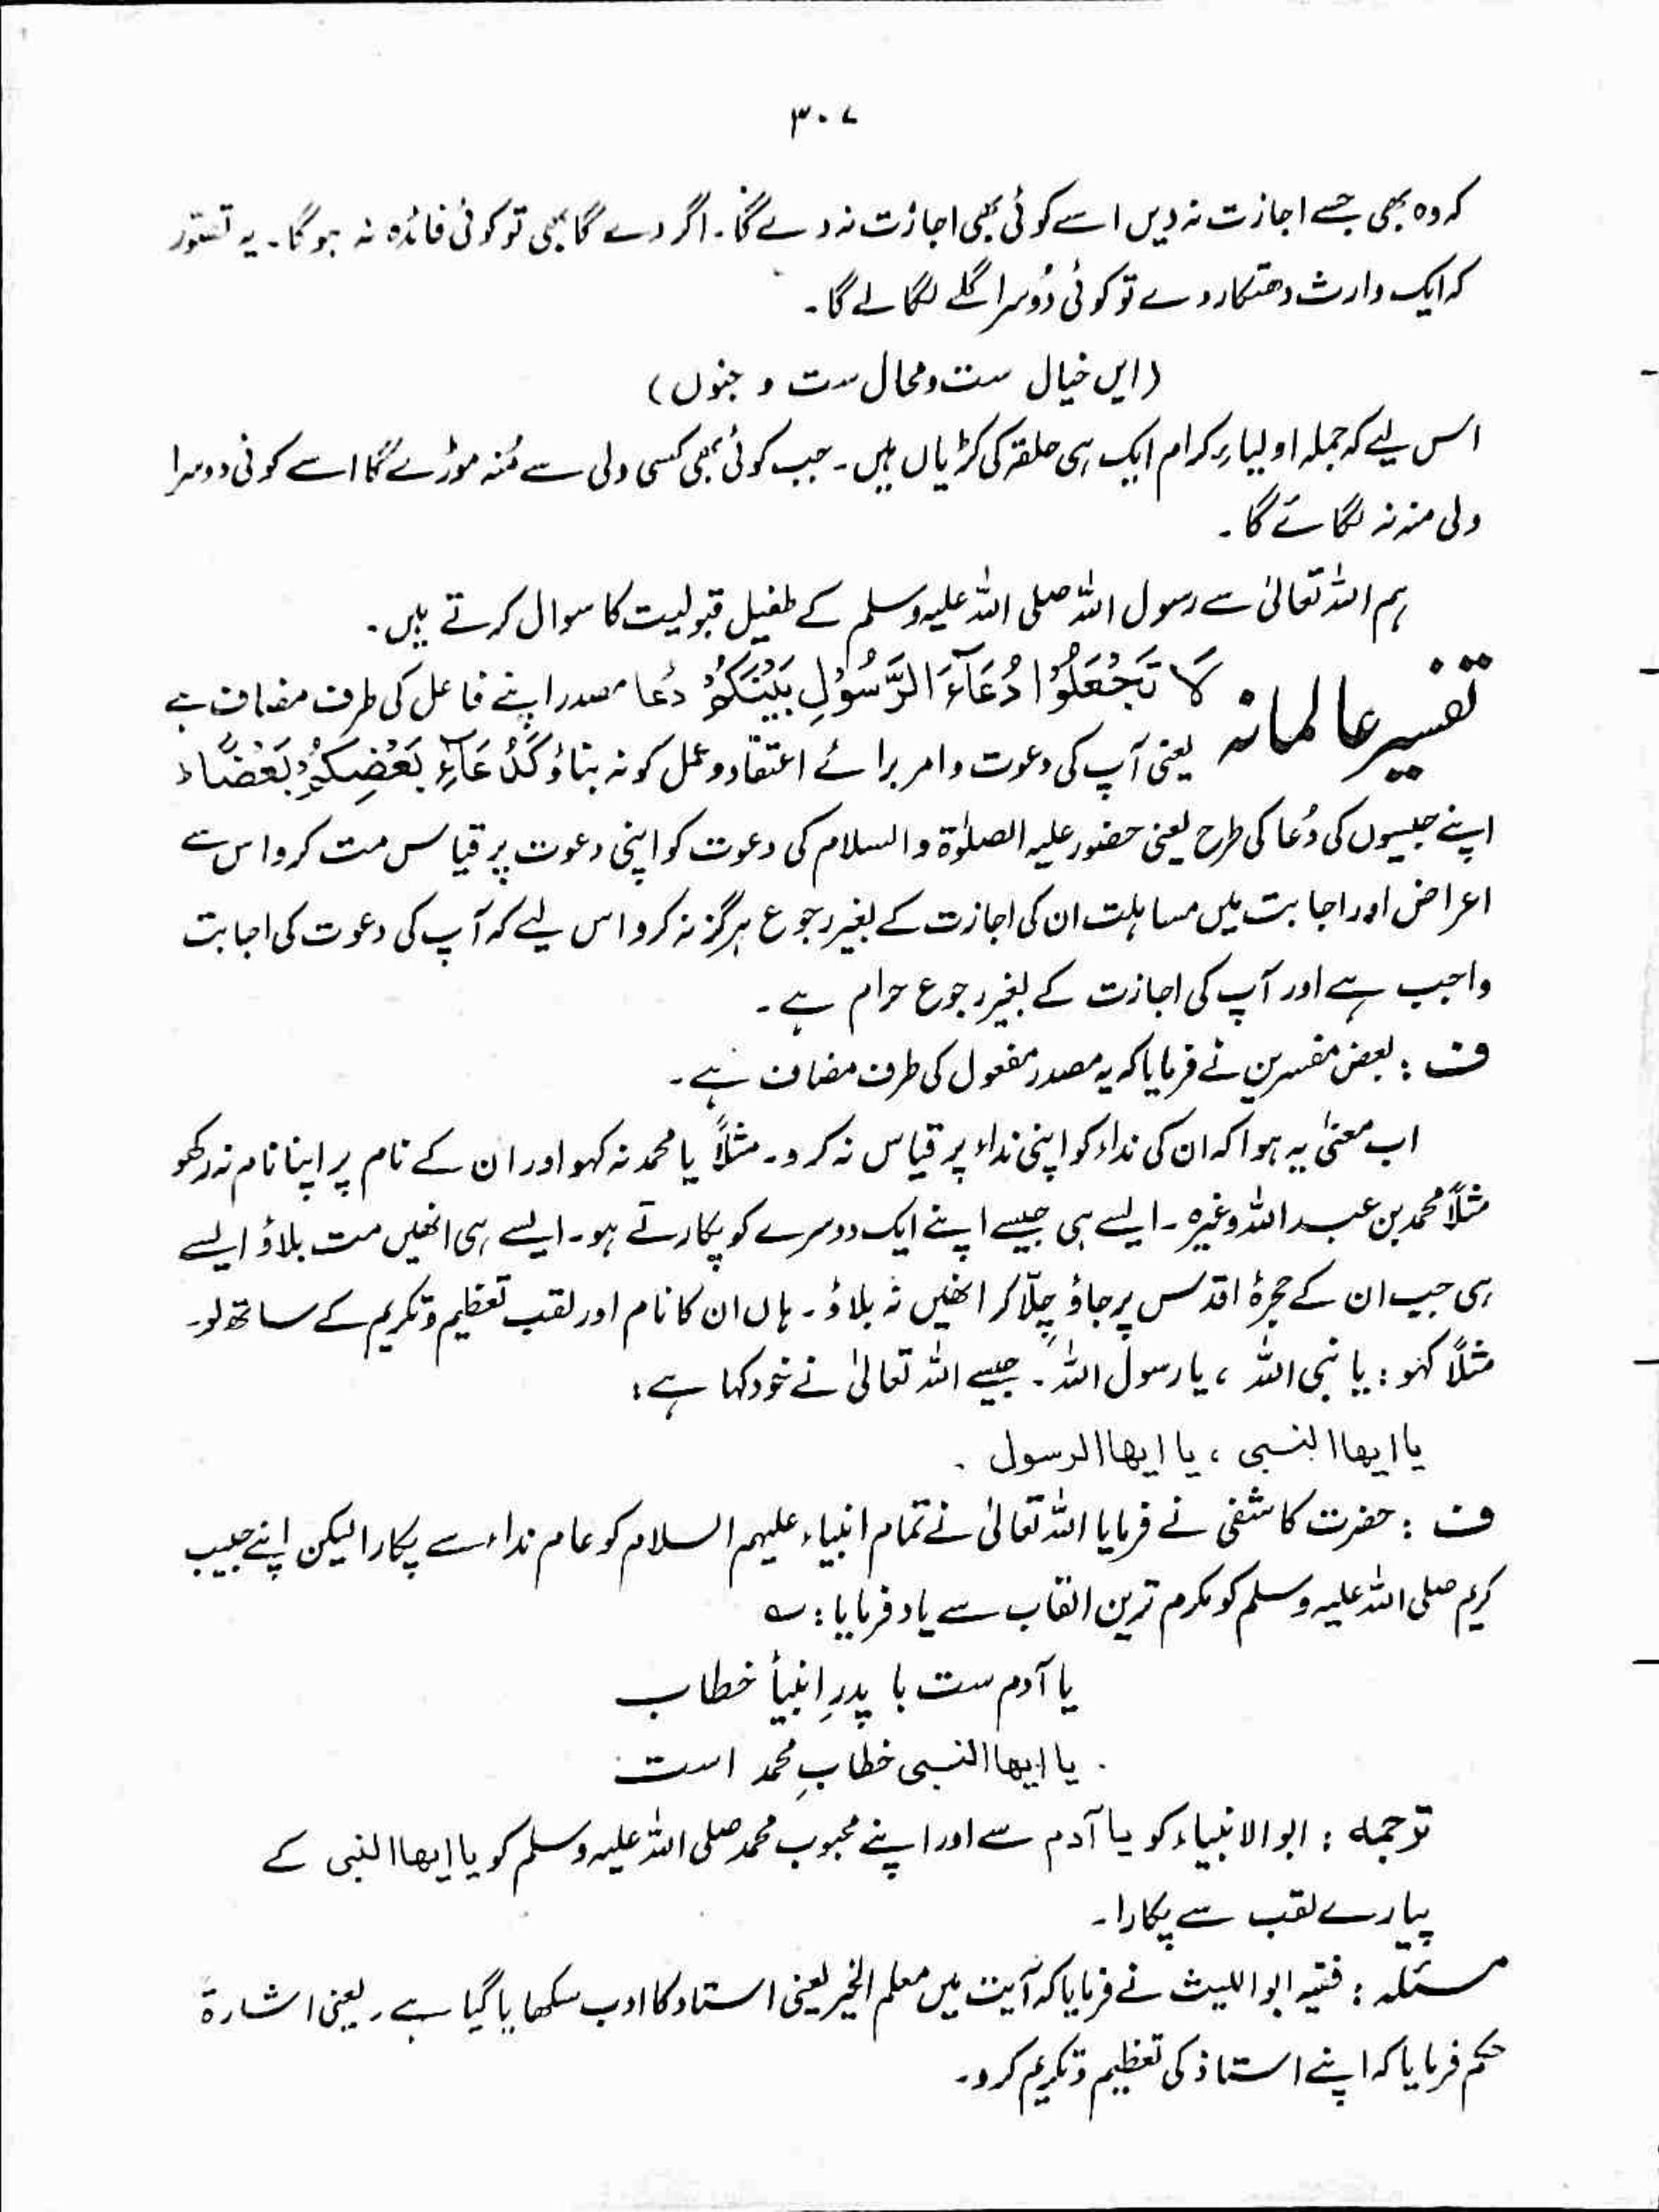 ۳۰۷
کہ وہ بھی جسے اجازت نہ دیں اسے کوئی بھی اجازت نہ دے گا۔ اگر دے گا بھی تو کوئی فائدہ نہ ہوگا۔ یہ تصوّر
کہ ایک وارث دھتکار دے تو کوئی دُوسرا گلے لگا لے گا۔
(ایں خیال ست و محال ست و جنوں)
اس لیے کہ جملہ اولیاءِ کرام ایک ہی حلقہ کی کڑیاں ہیں۔ جب کوئی بھی کسی ولی سے مُنہ موڑے گا اسے کوئی دوسرا
ولی منہ نہ لگائے گا۔
ہم اللہ تعالیٰ سے رسول اللہ صلی اللہ علیہ وسلم کے طفیل قبولیت کا سوال کرتے ہیں۔
تفسیر عالمانہ لَا تَجْعَلُوْا دُعَآءَ الرَّسُوْلِ بَیْنَکُمْ دُعا مصدر اپنے فاعل کی طرف مضاف ہے
یعنی آپ کی دعوت و امر برائے اعتقاد و عمل کو نہ بناؤ کَدُعَآءِ بَعْضِکُمْ بَعْضًا ط
اپنے جیسوں کی دُعا کی طرح یعنی حضور علیہ الصلوٰۃ والسلام کی دعوت کو اپنی دعوت پر قیاس مت کرو اس سے
اعراض اور اجابت میں مساہلت ان کی اجازت کے بغیر رجوع ہرگز نہ کرو اس لیے کہ آپ کی دعوت کی اجابت
واجب ہے اور آپ کی اجازت کے بغیر رجوع حرام ہے۔
ف : بعض مفسرین نے فرمایا کہ یہ مصدر مفعول کی طرف مضاف ہے۔
اب معنیٰ یہ ہوا کہ ان کی نداء کو اپنی نداء پر قیاس نہ کرو۔ مثلاً یا محمد نہ کہو اور ان کے نام پر اپنا نام نہ رکھو
مثلاً محمد بن عبد اللہ وغیرہ۔ ایسے ہی جیسے اپنے ایک دوسرے کو پکارتے ہو۔ ایسے ہی انھیں مت بلاؤ ایسے
ہی جب ان کے حجرۂ اقدس پر جاؤ چِلّا کر انھیں نہ بلاؤ۔ ہاں ان کا نام اور لقب تعظیم و تکریم کے ساتھ لو۔
مثلاً کہو : یا نبی اللہ ، یا رسول اللہ۔ جیسے اللہ تعالیٰ نے خود کہا ہے :
یا ایھا النبی ، یا ایھا الرسول ۔
ف : حضرت کاشفی نے فرمایا اللہ تعالیٰ نے تمام انبیاء علیہم السلام کو عام نداء سے پکارا لیکن اپنے حبیب
کریم صلی اللہ علیہ وسلم کو مکرم ترین القاب سے یاد فرمایا : ؎
یا آدم ست با پدرِ انبیأ خطاب
یا ایھا النبی خطابِ محمد است
ترجمہ : ابو الانبیاء کو یا آدم سے اور اپنے محبوب محمد صلی اللہ علیہ وسلم کو یا ایھا النبی کے
پیارے لقب سے پکارا۔
مسئلہ : فقیہ ابو اللیث نے فرمایا کہ آیت میں معلم الخیر یعنی استاد کا ادب سکھایا گیا ہے۔ یعنی اشارۃً
حکم فرمایا کہ اپنے استاذ کی تعظیم و تکریم کرو۔